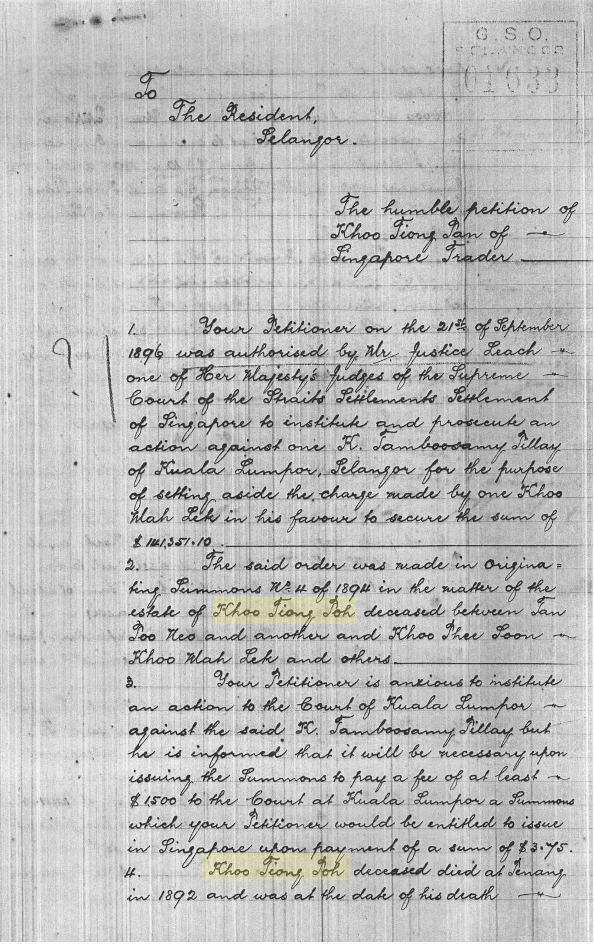 G.S.O.
SELANGOR
01633
To
The Resident,
Selangor.
The humble petition of
Khoo Tiong Pan of —
Singapore Trader —
1. Your Petitioner on the 21st of September
1896 was authorised by Mr. Justice Leach —
?
one of Her Majesty's Judges of the Supreme —
Court of the Straits Settlements Settlement
of Singapore to institute and prosecute an
action against one K. Tamboosamy Pillay
of Kuala Lumpor, Selangor for the purpose
of setting aside the charge made by one Khoo
Mah Lek in his favour to secure the sum of
$141,351.10.
2. The said order was made in Origina=
ting Summons No. 4 of 1894 in the matter of the
estate of Khoo Tiong Poh deceased between Tan
Poo Neo and another and Khoo Phee Soon —
Khoo Mah Lek and others.
3. Your Petitioner is anxious to institute
an action to the Court of Kuala Lumpor —
against the said K. Tamboosamy Pillay but
he is informed that it will be necessary upon
issuing the Summons to pay a fee of at least —
$1500 to the Court at Kuala Lumpor a Summons
which your Petitioner would be entitled to issue
in Singapore upon payment of a sum of $3.75.
4. Khoo Tiong Poh deceased died at Penang
in 1892 and was at the date of his death —